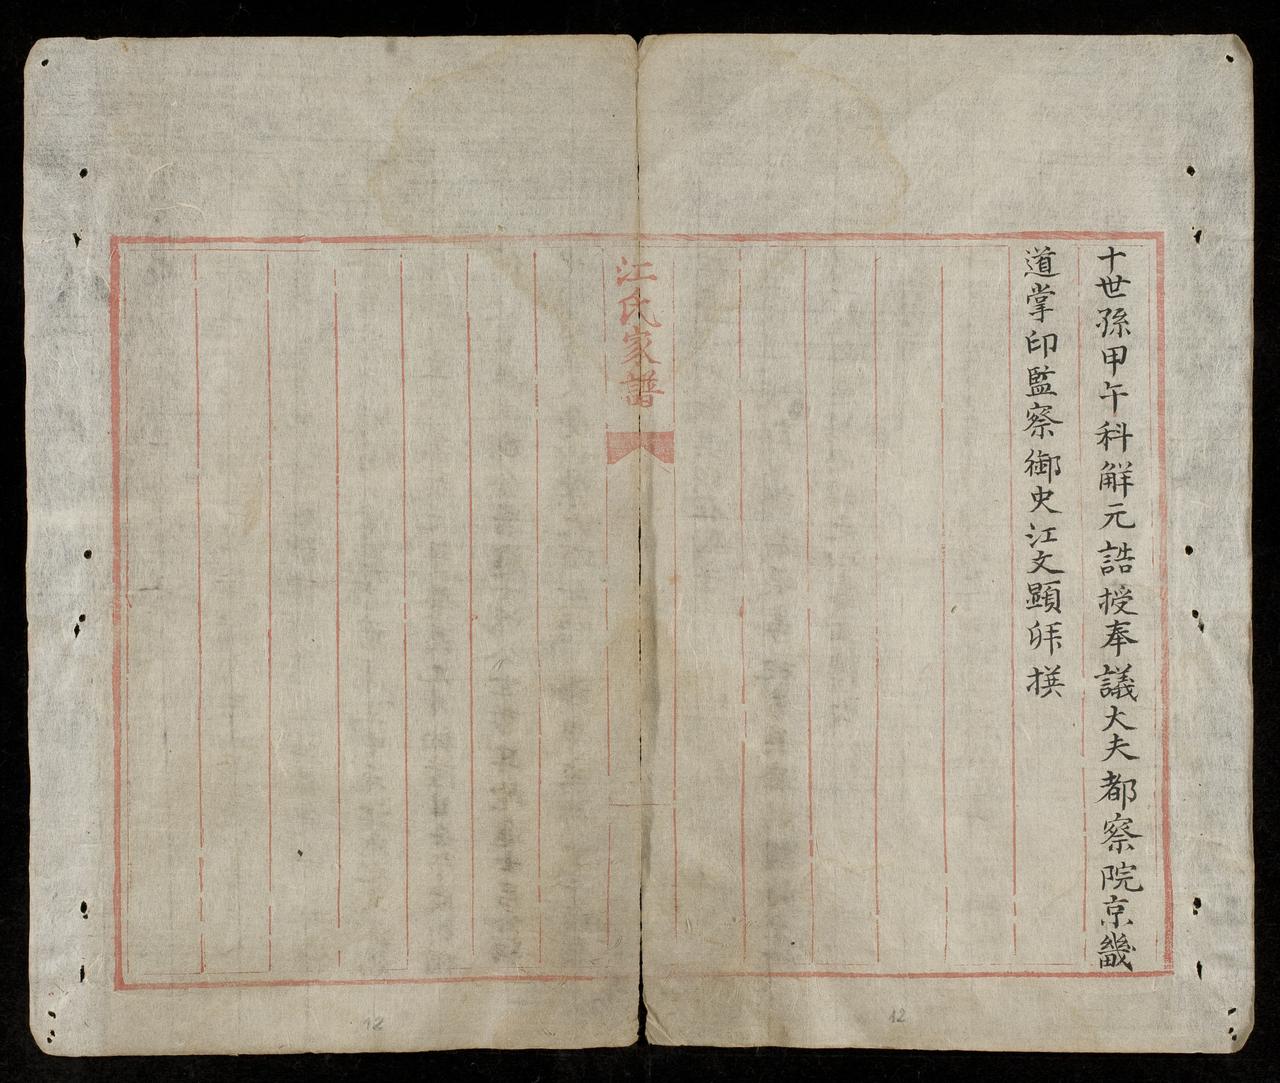 十世孫甲午科解元誥授奉議大夫都察院京畿
道掌印監察御史江文顯拜撰
江氏家譜
12
12